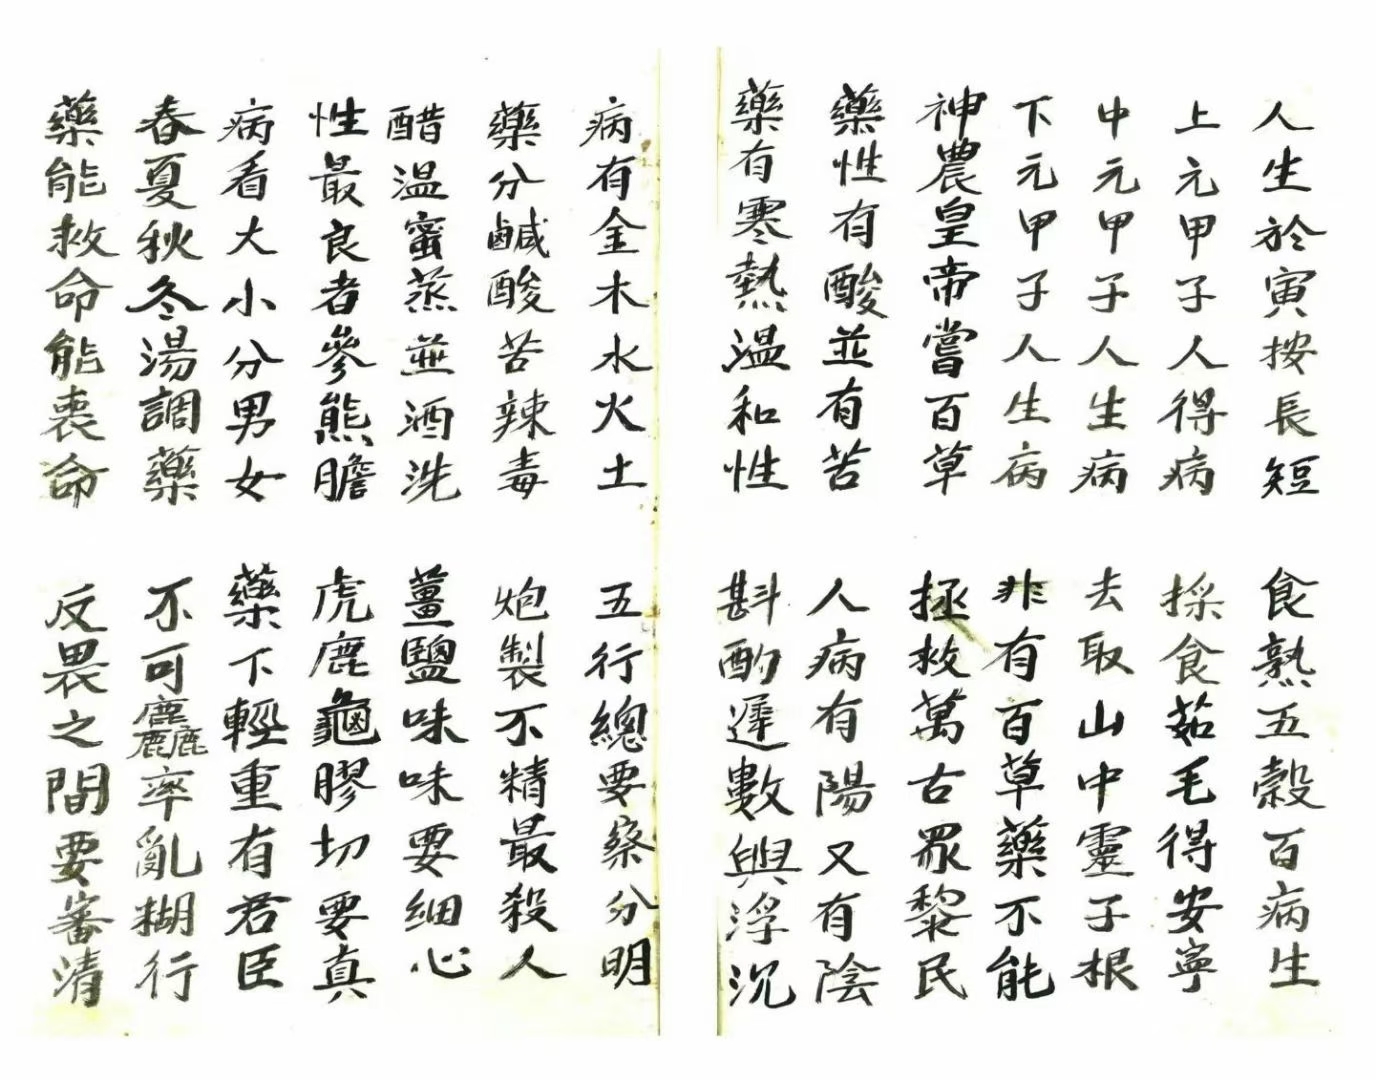 人生於寅按長短
食熟五穀百病生
上元甲子人得病
採食茹毛得安寧
中元甲子人生病
去取山中靈子根
下元甲子人生病
非有百草藥不能
神農皇帝嘗百草
拯救萬古眾黎民
藥性有酸並有苦
人病有陽又有陰
藥有寒熱溫和性
斟酌遲數與浮沉
病有金木水火土
五行總要察分明
藥分鹹酸苦辣毒
炮製不精最殺人
醋溫蜜蒸並酒洗
薑鹽味味要細心
性最良者參熊膽
虎鹿龜膠切要真
病看大小分男女
藥下輕重有君臣
春夏秋冬湯調藥
不可麤率亂糊行
藥能救命能喪命
反畏之間要審清